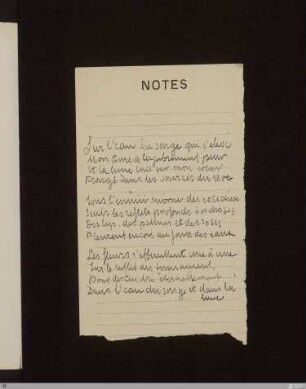 NOTES
Sur l'eau du songe qui s'élève
Mon âme a
Et la lune luit sur mon cœur
Plongé dans les sources du rêve
Sous l'ennui morne des roseaux
Seuls les reflets profonds des choses
Des lys, des palmes et des roses
Pleurent encore au fond des eaux
Les fleurs s'effeuillent une à une
Sur le reflet du firmament
Pour descendre éternellement
Dans l'eau du songe et dans la
lune